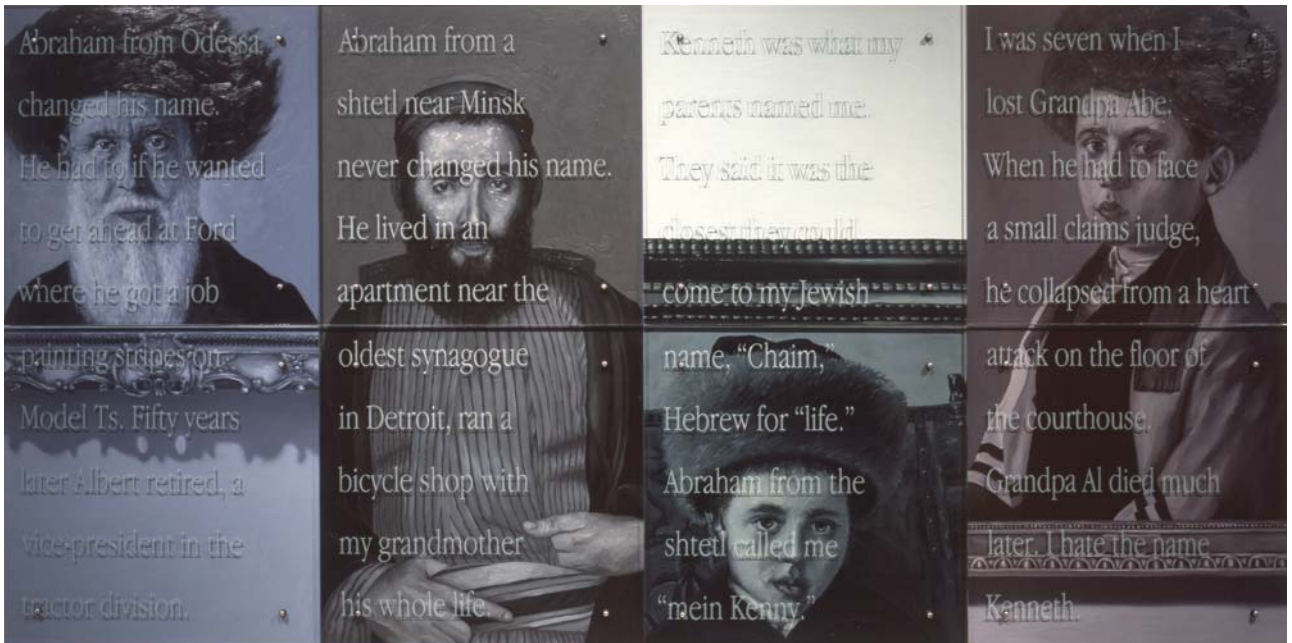 Abraham from Odessa
changed his name.
He had to if he wanted
to get ahead at Ford
where he got a job
painting stripes on
Model Ts. Fifty years
later Albert retired, a
vice-president in the
tractor division.
Abraham from a
shtetl near Minsk
never changed his name.
He lived in an
apartment near the
oldest synagogue
in Detroit, ran a
bicycle shop with
my grandmother
his whole life.
Kenneth was what my
parents named me.
They said it was the
closest they could
come to my Jewish
name, “Chaim,”
Hebrew for “life.”
Abraham from the
shtetl called me
“mein Kenny.”
I was seven when I
lost Grandpa Abe.
When he had to face
a small claims judge,
he collapsed from a heart
attack on the floor of
the courthouse.
Grandpa Al died much
later. I hate the name
Kenneth.